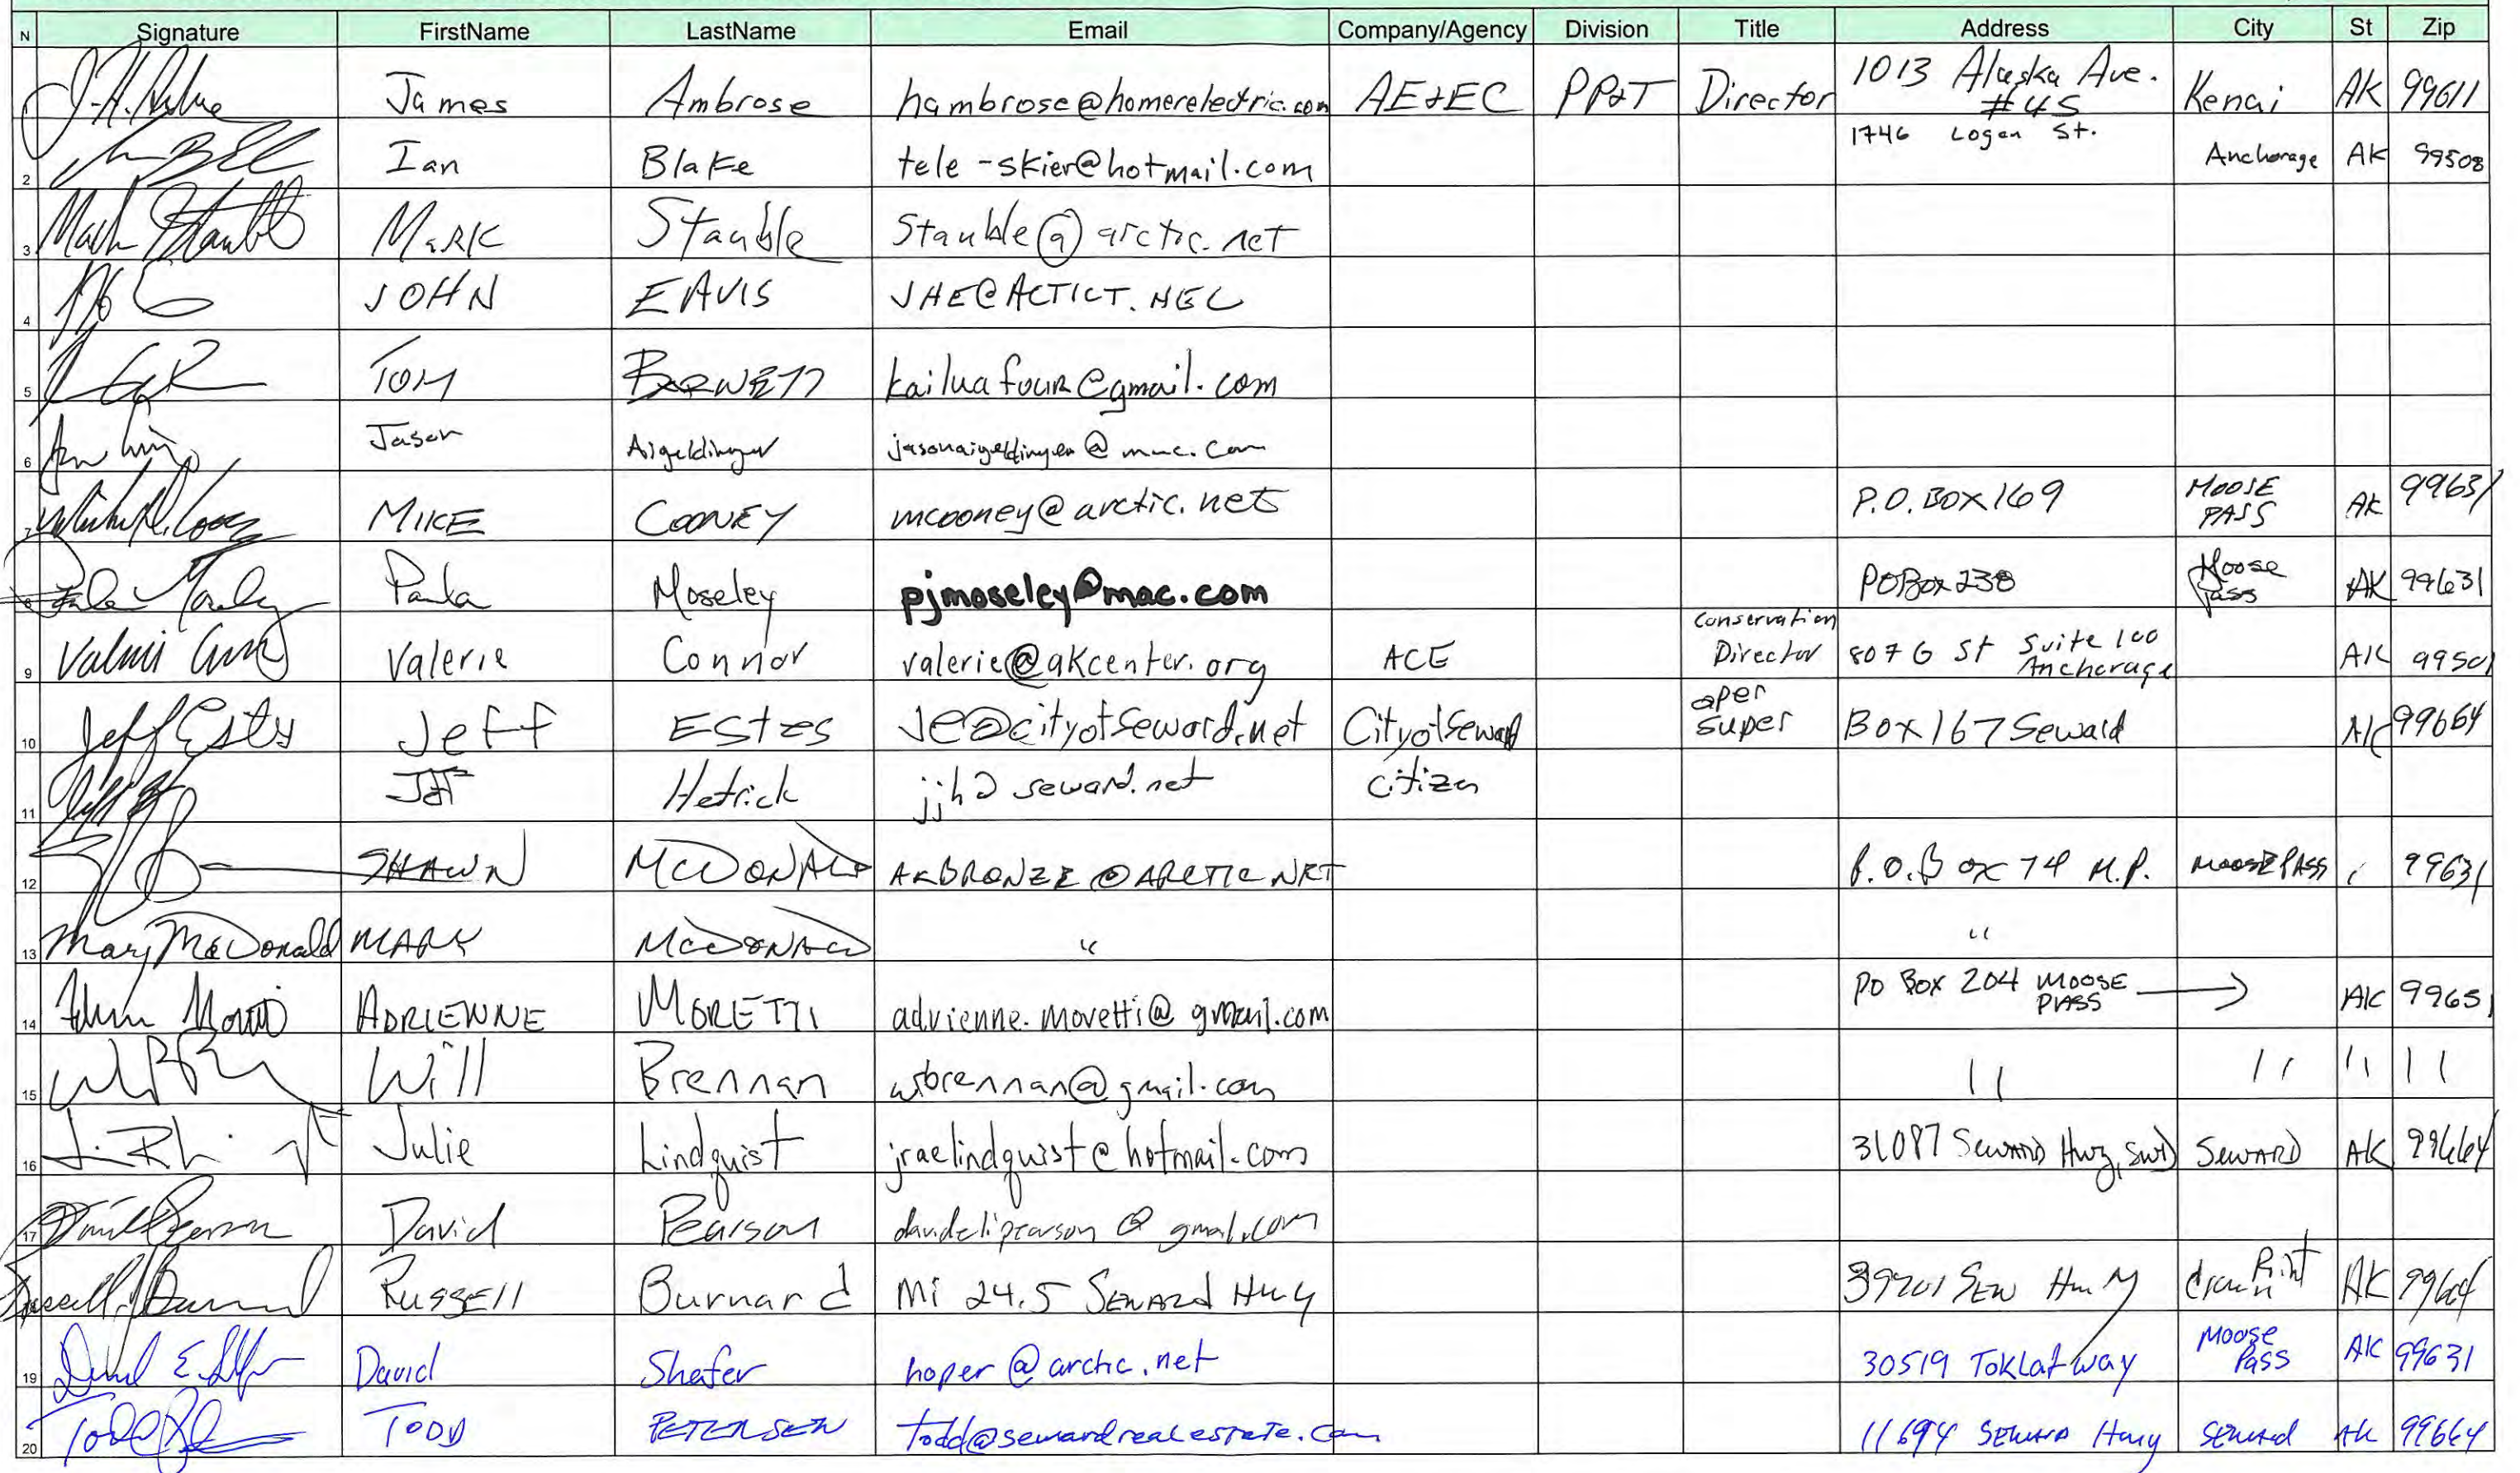 N Signature FirstName LastName Email Company/Agency Division Title Address City St Zip
1 James Ambrose hambrose@homerelectric.com AE&EC PP&T Director 1013 Alaska Ave. #45 Kenai AK 99611
2 Ian Blake tele-skier@hotmail.com 1746 Logan St. Anchorage AK 99508
3 Mark Stauble MARK Stauble Stauble@arctic.net
4 JOHN EAVIS
5 TOM kailuafour@gmail.com
6 Jason Aigeldinger jasonaigeldinger@mac.com
7 MIKE COONEY mcooney@arctic.net P.O. BOX 169 MOOSE PASS AK 99631
8 Paula Moseley pjmoseley@mac.com PO Box 238 Moose Pass AK 99631
9 Valerie Connor valerie@akcenter.org ACE Conservation Director 807 G St Suite 100 Anchorage AK 99501
10 Jeff Estes Jeff Estes JE@cityofseward.net City of Seward oper super Box 167 Seward AK 99664
11 Jeff Hetrick jjh@seward.net citizen
12 SHAWN McDONALD AKBRONZE@ARCTIC.NET P.O. Box 74 M.P. MOOSE PASS 99631
13 Mary McDonald MARY McDONALD " "
14 ADRIENNE MORETTI adrienne.moretti@gmail.com PO BOX 204 MOOSE PASS → AK 9965
15 Will Brennan wbrennan@gmail.com 11 11 11 11
16 Julie Lindquist jraelindquist@hotmail.com 31087 SEWARD Hwy, SWD SEWARD AK 99664
17 David Pearson davidelipearson@gmail.com
RUSSEll Burnard Mi 24.5 SEWARD Hwy SEW Hwy AK 99664
19 David Shafer hoper@arctic.net 30519 Toklat way Moose Pass AK 99631
20 TODD PETERSEN todd@sewardrealestate.com 11694 SEWARD Hwy SEWARD AK 99664